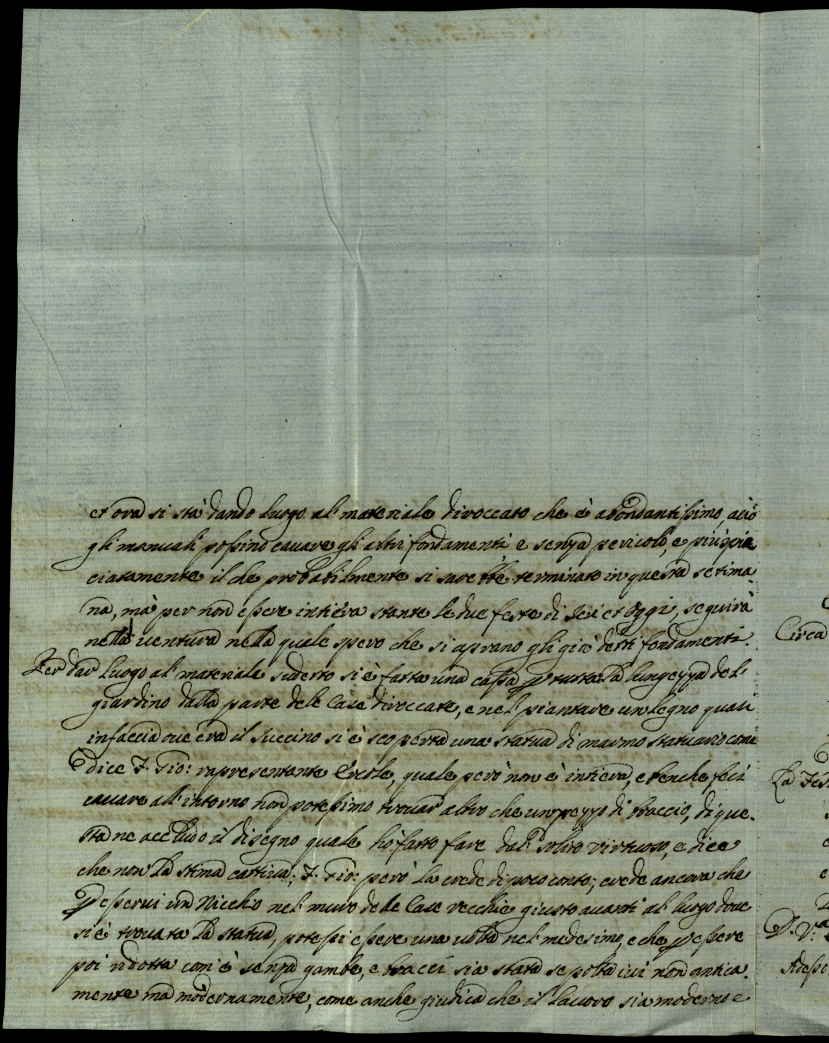 et ora si stà dando luogo al materiale diroccato che è abondantissimo, acciò
gli manuali possino cavare gli altri fondamenti e senza pericolo, e più spia
ciatamente il che probabilmente si sarebbe terminato in questa setima
na, mà per non essere intiera stante le due feste di Ieri et Oggi, seguirà
nella ventura nella quale spero che si aprano gli già detti fondamenti.
Per dar luogo al materiale sudetto si è fatta una cassa per tutta la lunghezza del
giardino dalla parte dele Case diroccate, e nel piantare un legno quasi
in faccia ove era il Succino si è scoperta una statua di marmo statuario come
dice F. Gio: rapresentante Ercole, quale però non è intiera, e benche feci
cavare all'intorno non potessimo trovar altro che un pezzo di braccio, di que-
sta ne accludo il disegno quale hò fatto fare dal virtuoso, e dice
che non la stima cattiva; F. Gio: però la crede di poco conto; crede ancora che
per esservi un Nicchio nel muro dele Case vecchie giusto avanti al luogo dove
si è trovata la statua, potessi essere una volta nel medesimo, e che per essere
poi ridotta com'è senza gambe, e bracci sia stata sepolta ivi non antica-
mente ma modernamente, come anche giudica che il lavoro sia moderno e
Circa
La
V. S.
Adesso